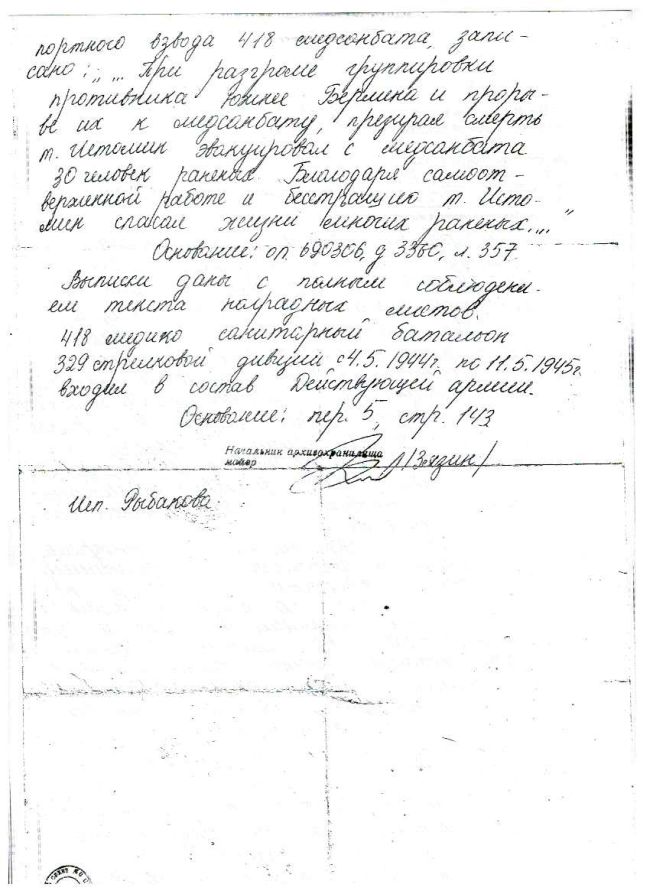 портного взвода 418 медсонбата, запи-
сано: „... При разгроме группировки
противника южнее Берлина и проры-
ве их к медсанбату, презирая смерть
т. Истомин эвакуировал с медсанбата
30 человек раненых. Благодаря самоот-
верженной работе и бесстрашию т. Исто-
мин спасал жизни многих раненых..."
Основание: оп. 690306, д 3360, л. 357.
Выписки даны с полным соблюдени-
ем текста наградных листов.
418 медико санитарный батальон
329 стрелковой дивизии с 4.5.1944г. по 11.5.1945г.
входил в состав Действующей армии.
Основание: пер. 5, стр. 143
Начальник архивохранилища
майор /Зязин/
Исп. Рыбакова